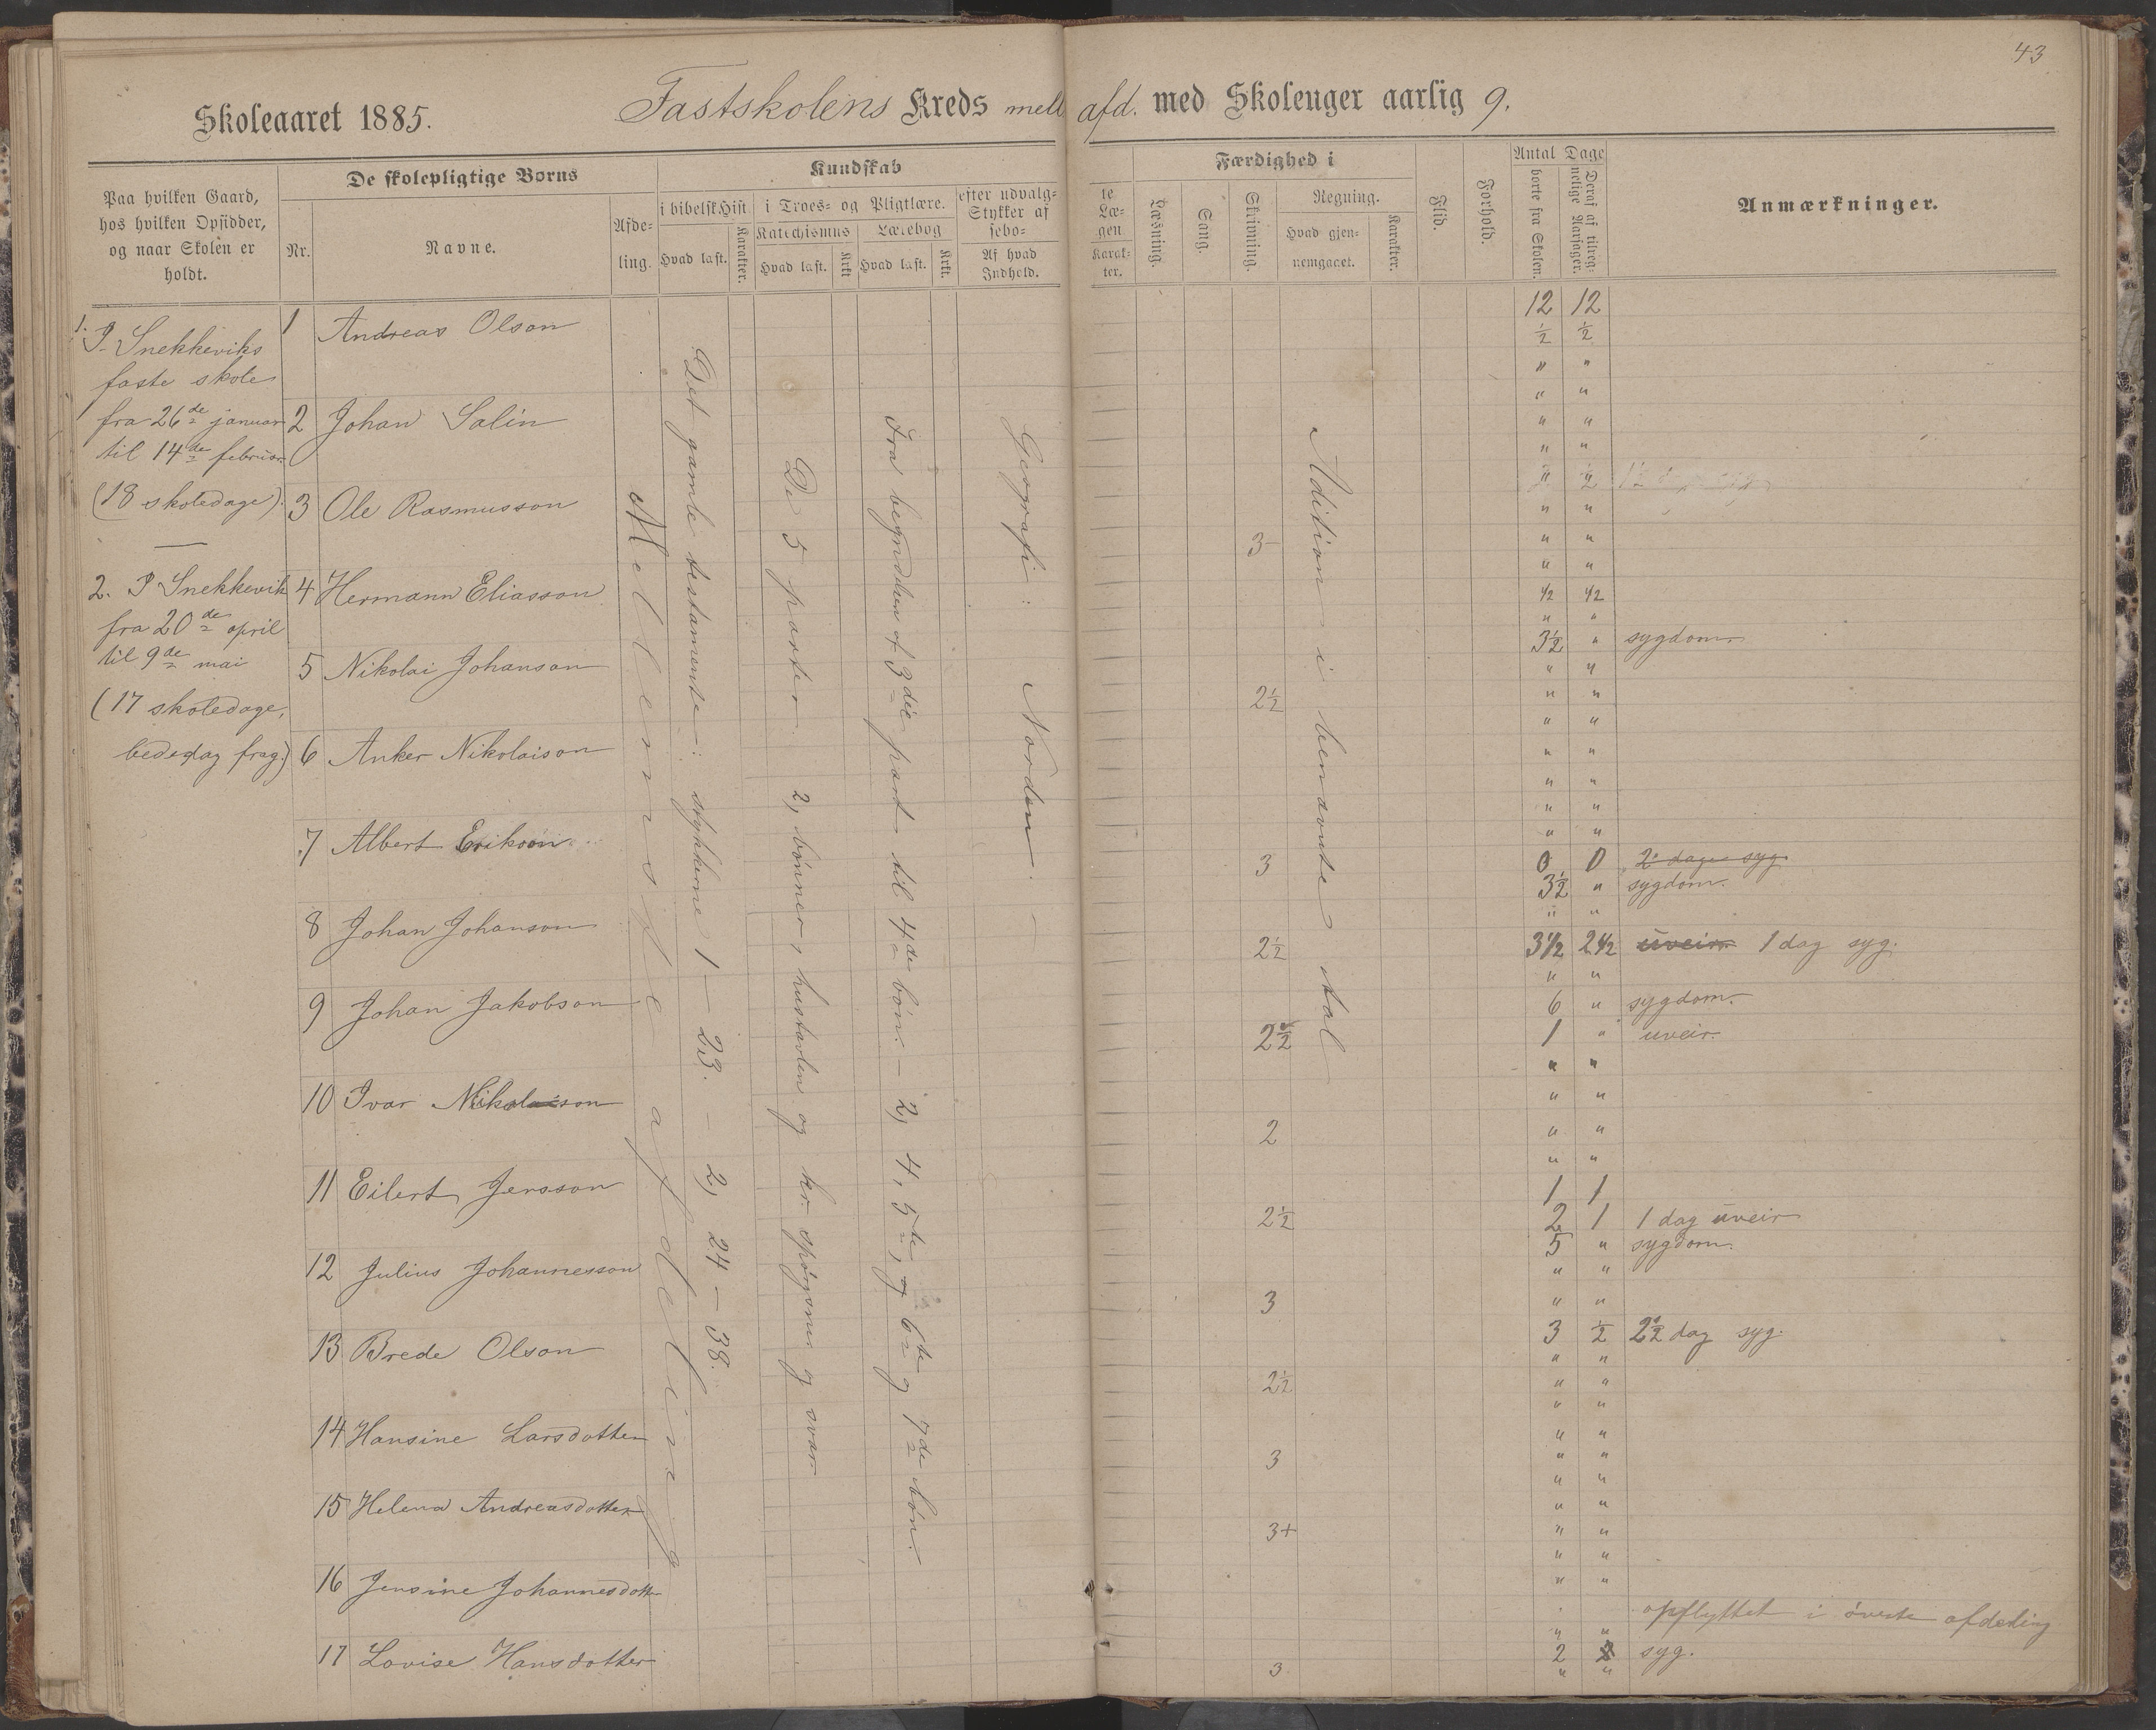 43
Skoleaaret 1885. Fastskolens Kreds mell afd. med Skoleuger aarlig 9.
Paa hvilken Gaard,
hos hvilken Opsidder,
og naar Skolen er
holdt.
De skolepligtige Børns
Nr.
Navne.
Afde-
ling.
Kundskab
i bibelsk Hist.
Hvad læst.
Karakter.
i Troes- og Pligtlære.
Katechismus
Hvad læst.
Krkt
Lærebog
Hvad læst.
Krkt.
efter udvalg-
Stykker af
sebo-
Af hvad
Indhold.
te
Læ-
gen
Karak-
ter.
Færdighed i
Læsning.
Sang.
Skrivning.
Regning.
Hvad gjen-
nemgaaet.
Karakter.
Flid.
Forhold.
Antal Dage
borte fra Skolen.
Deraf af tilreg-
nelige Aarsager.
Anmærkninger.
1.
I Snekkeviks
faste skole
fra 26de januar
til 14de februar
(18 skoledage).
2. I Snekkevik
fra 20de april
til 9de mai
(17 skoledage,
bededag frag.)
1 Andreas Olson
2 Johan Salin
3 Ole Rasmusson
4 Hermann Eliasson
5 Nikolai Johanson
6 Anker Nikolaison
7 Albert Erikson
8 Johan Johanson
9 Johan Jakobson
10 Ivar Nikolaison
11 Eilert Jensson
12 Julius Johannesson
13 Brede Olson
14 Hansine Larsdotter
15 Helena Andreasdotter
16 Jensine Johannesdotter
17 Lovise Hansdotter
Mellemste afdeling
Det gamle testamente: stykkerne 1 - 23. - 2, 24 - 38.
De 5 parter. 2, bønner, hustavlen og kr. spørgsmr og svar
Fra begyndelsen af 3die part til 4de bøn. - 2, 4, 5te, og 6te og 7de bøn.
Geografi: Norden. -
Adition i benævnte tal
3-
2½
3
2½
2½
2
2½
3
2½
3
3+
3
12 12
½ ½
" "
" "
" "
" "
" ½
" "
" "
" "
½ ½
" "
3½ " sygdom
" "
" "
" "
" "
" "
" "
" "
0 0 2 dage syg.
3½ " sygdom.
" "
3½ 2½ uveir 1 dag syg.
" "
6 " sygdom.
1 " uveir.
" "
" "
" "
" "
1 1
2 1 1 dag uveir
5 " sygdom.
" "
" "
3 ½ 2½ dag syg.
" "
" "
" "
" "
" "
" "
" "
" "
" "
" "
opflyttet i øverste afdeling
" "
2 2 syg.
" "